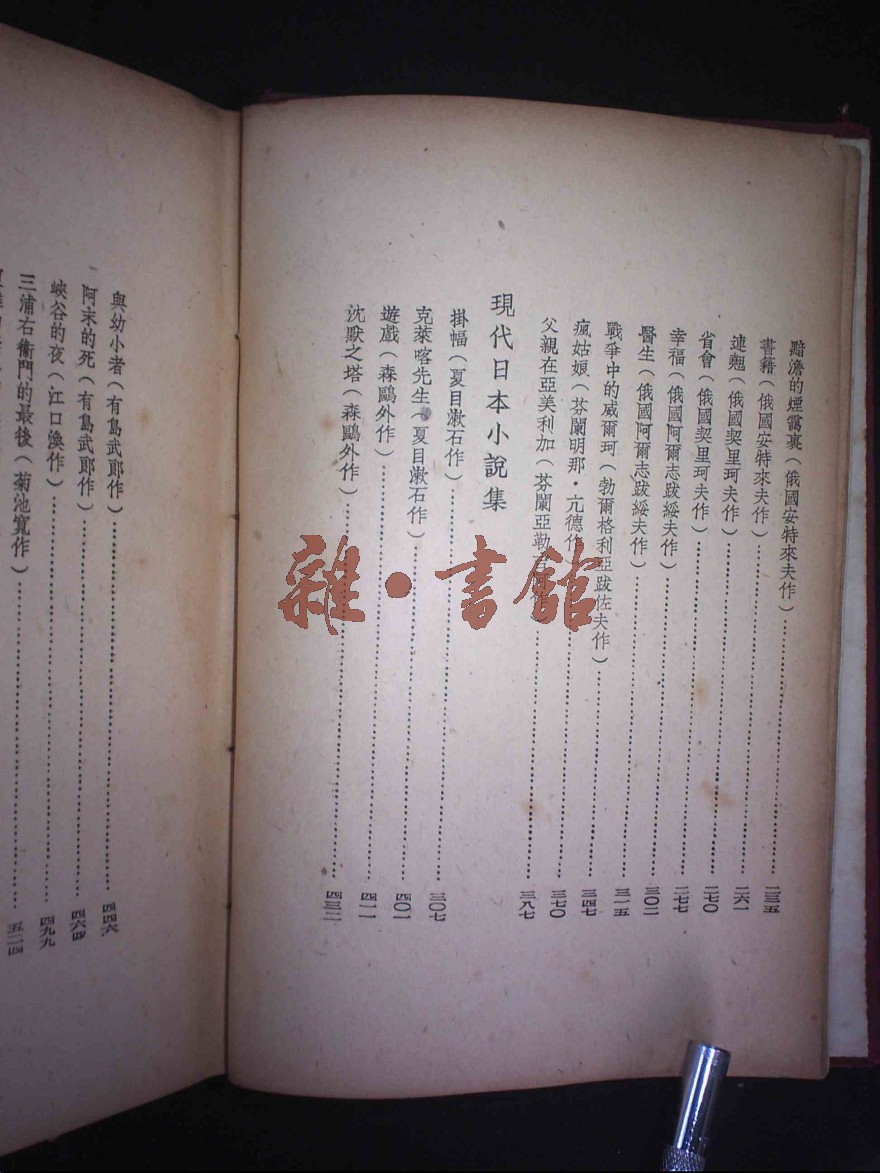 黯澹的煙靄裏(俄國安特來夫作)……二三五
書籍(俄國安特來夫作)……二六一
連翹(俄國契里珂夫作)……二七〇
省會(俄國契里珂夫作)……二七七
幸福(俄國阿爾志跋綏夫作)……三〇二
醫生(俄國阿爾志跋綏夫作)……三一五
戰爭中的威爾珂(勃爾格利亞跋佐夫作)……三四七
瘋姑娘(芬蘭明那·亢德作)……三七〇
父親在亞美利加(芬蘭亞勒吉阿作)……三八七
現代日本小說集
掛幅(夏目漱石作)……三〇七
克萊喀先生(夏目漱石作)……四〇一
遊戲(森鷗外作)……四一一
沈默之塔(森鷗外作)……四三二
與幼小者(有島武郎作)……四四六
阿末的死(有島武郎作)……四六四
峽谷的夜(江口渙作)……四九九
三浦右衞門的最後(菊池寬作)……五二四
雜·書館